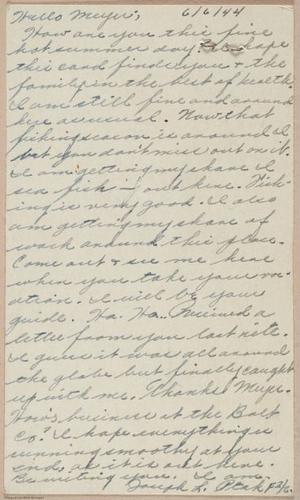 Hello Meyer, 6/6/44
How are you this fine
hot summer day. I hope
this card finds you & the
family in the best of health.
I am still fine and around
here as usual. Now that
fishing season is around I
bet you don't miss out on it.
I am getting my share of
sea fish — out here. Fish-
ing is very good. I also
am getting my share of
work around this place.
Come out & see me here
when you take your vac-
ation. I will be your
guide. Ha. Ha. Received a
letter from you last nite.
I guess it was all around
the globe but finally caught
up with me. Thanks Meyer.
How's business at the Bolt
Co? I hope everything is
running smoothly at your
end, as it is out here.
Be writing you. I am.
Joseph L.